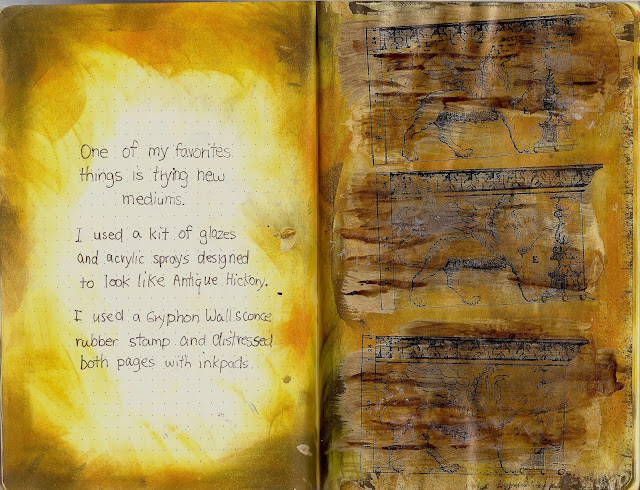 One of my favorites
things is trying new
mediums.
I used a kit of glazes
and acrylic sprays designed
to look like Antique Hickory.
I used a Gryphon Wallsconce
rubber stamp and distressed
both pages with inkpads.
E